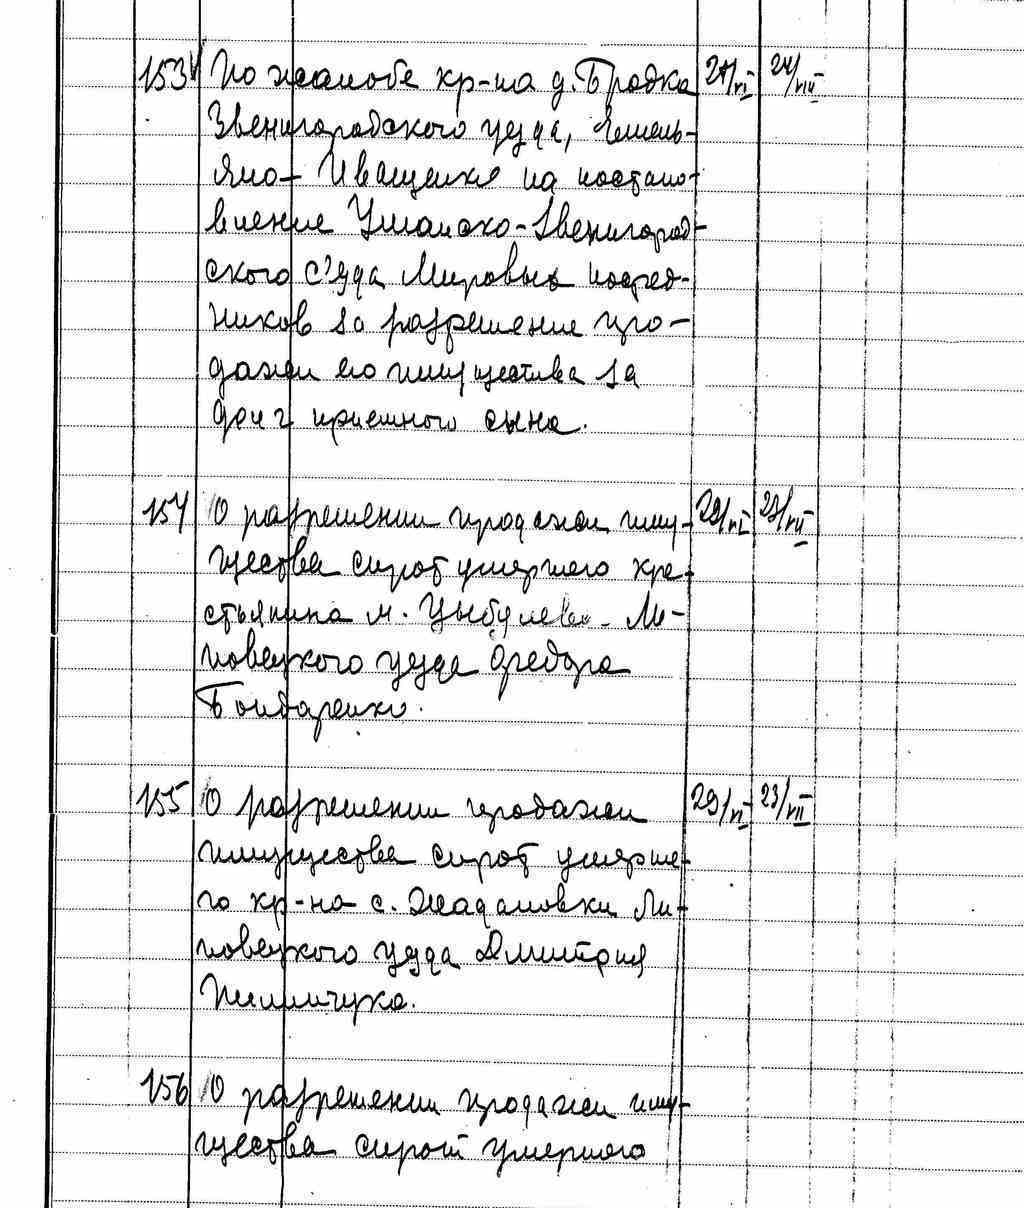 153 По жалобе кр-на д. Бродка 27/VI 24/VIII
Звенигородского уезда, Емель-
яна Иващенко на постано-
вление Уманско-Звенигород-
ского с'езда Мировых посред-
ников за разрешение про-
дажи его имущества за
долг приемного сына.
154 О разрешении продажи иму- 29/VI 23/VII
щества сирот умершего кре-
стьянина м. Цыбулева Ли-
повецкого уезда Федора
Бондаренко.
155 О разрешении продажи 29/VI 23/VII
имущества сирот умерше-
го кр-на с. Жадановки Ли-
повецкого уезда Дмитрия
156 О разрешении продажи иму-
щества сирот умершего